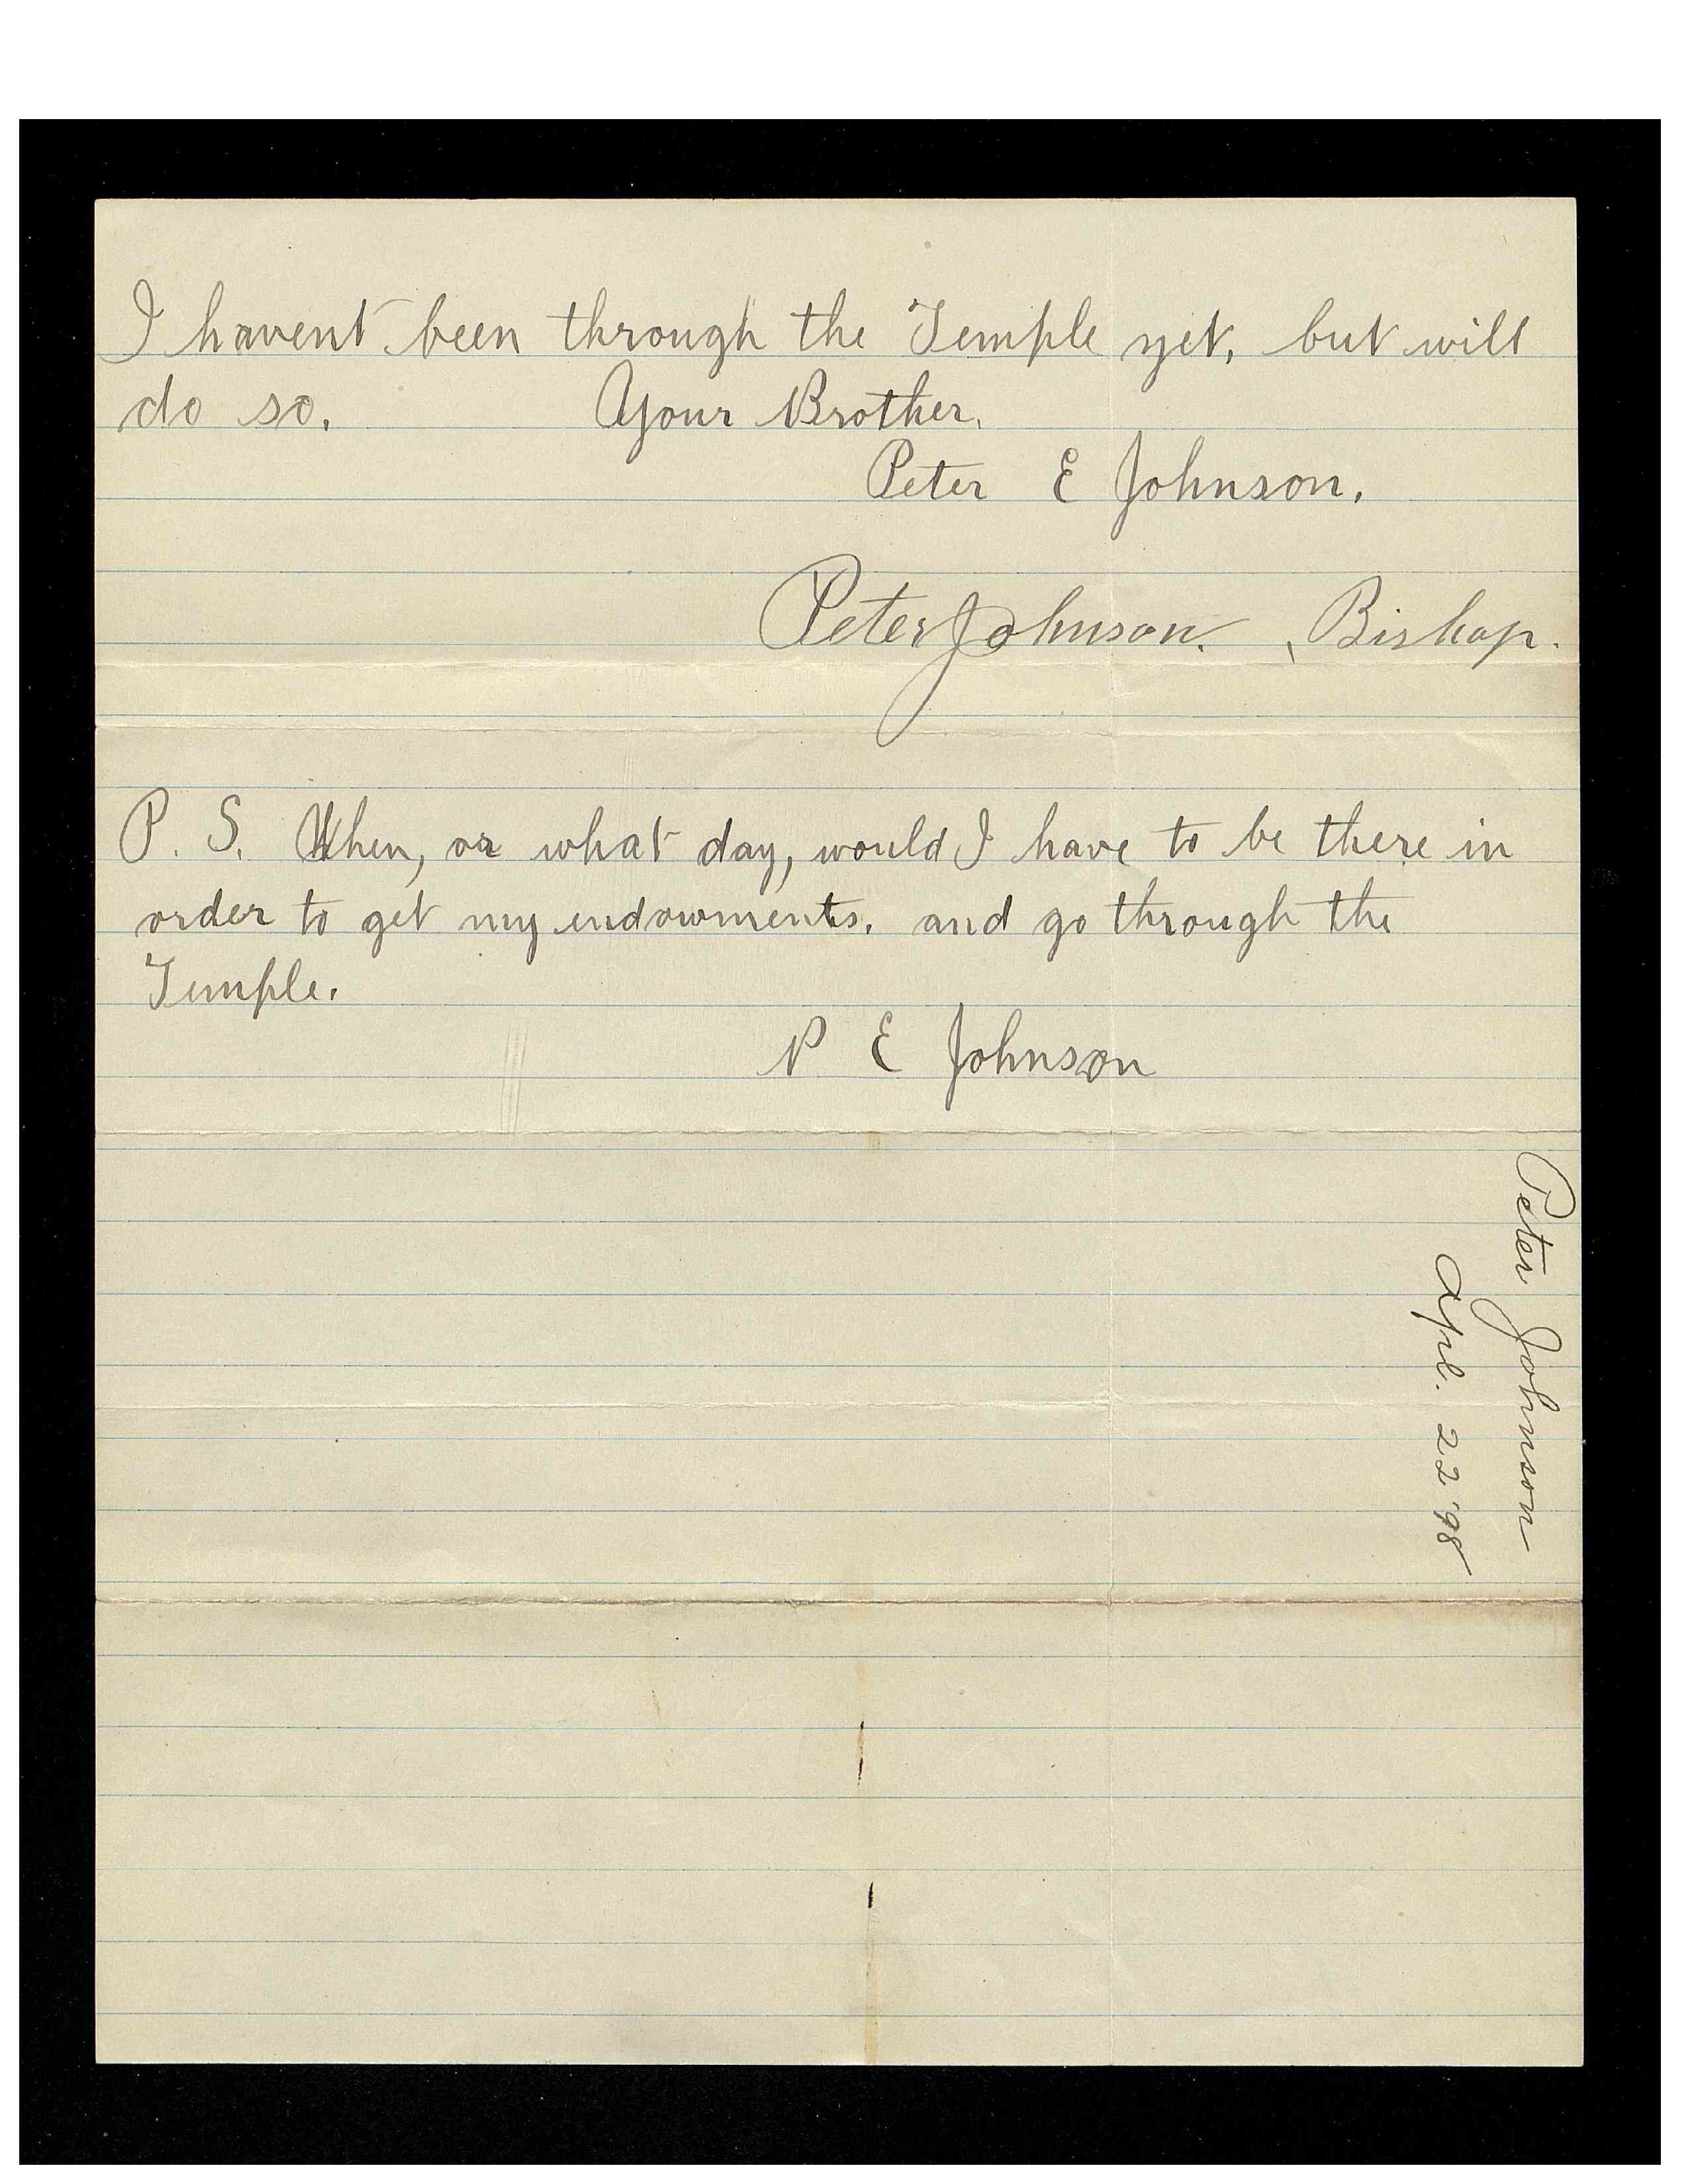 I havent been through the Temple yet, but will
do so. Your Brother.
Peter E Johnson.
Peter Johnson. , Bishop.
P. S. When, or what day, would I have to be there in
order to get my endowments. and go through the
Temple.
P E Johnson
Peter Johnson
Apl. 22 '98